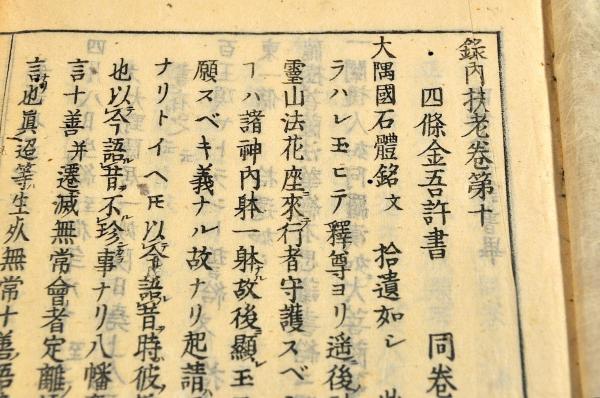 錄內扶老卷第十
四條金吾許書　同卷
大隅國石體銘文　拾遺如シ
ラハレ玉ヒテ釋尊ヨリ遥後
靈山法花座來行者守護スベシ
ハ諸神內躰一躰故後顯玉
願スベキ義ナル故ナリ起請
ナリトイヘ𪜈以今語昔時彼
也以今語昔不珍事ナリ八幡
言十善并遷滅無常會者定離
言也眞迢等生死無常十善